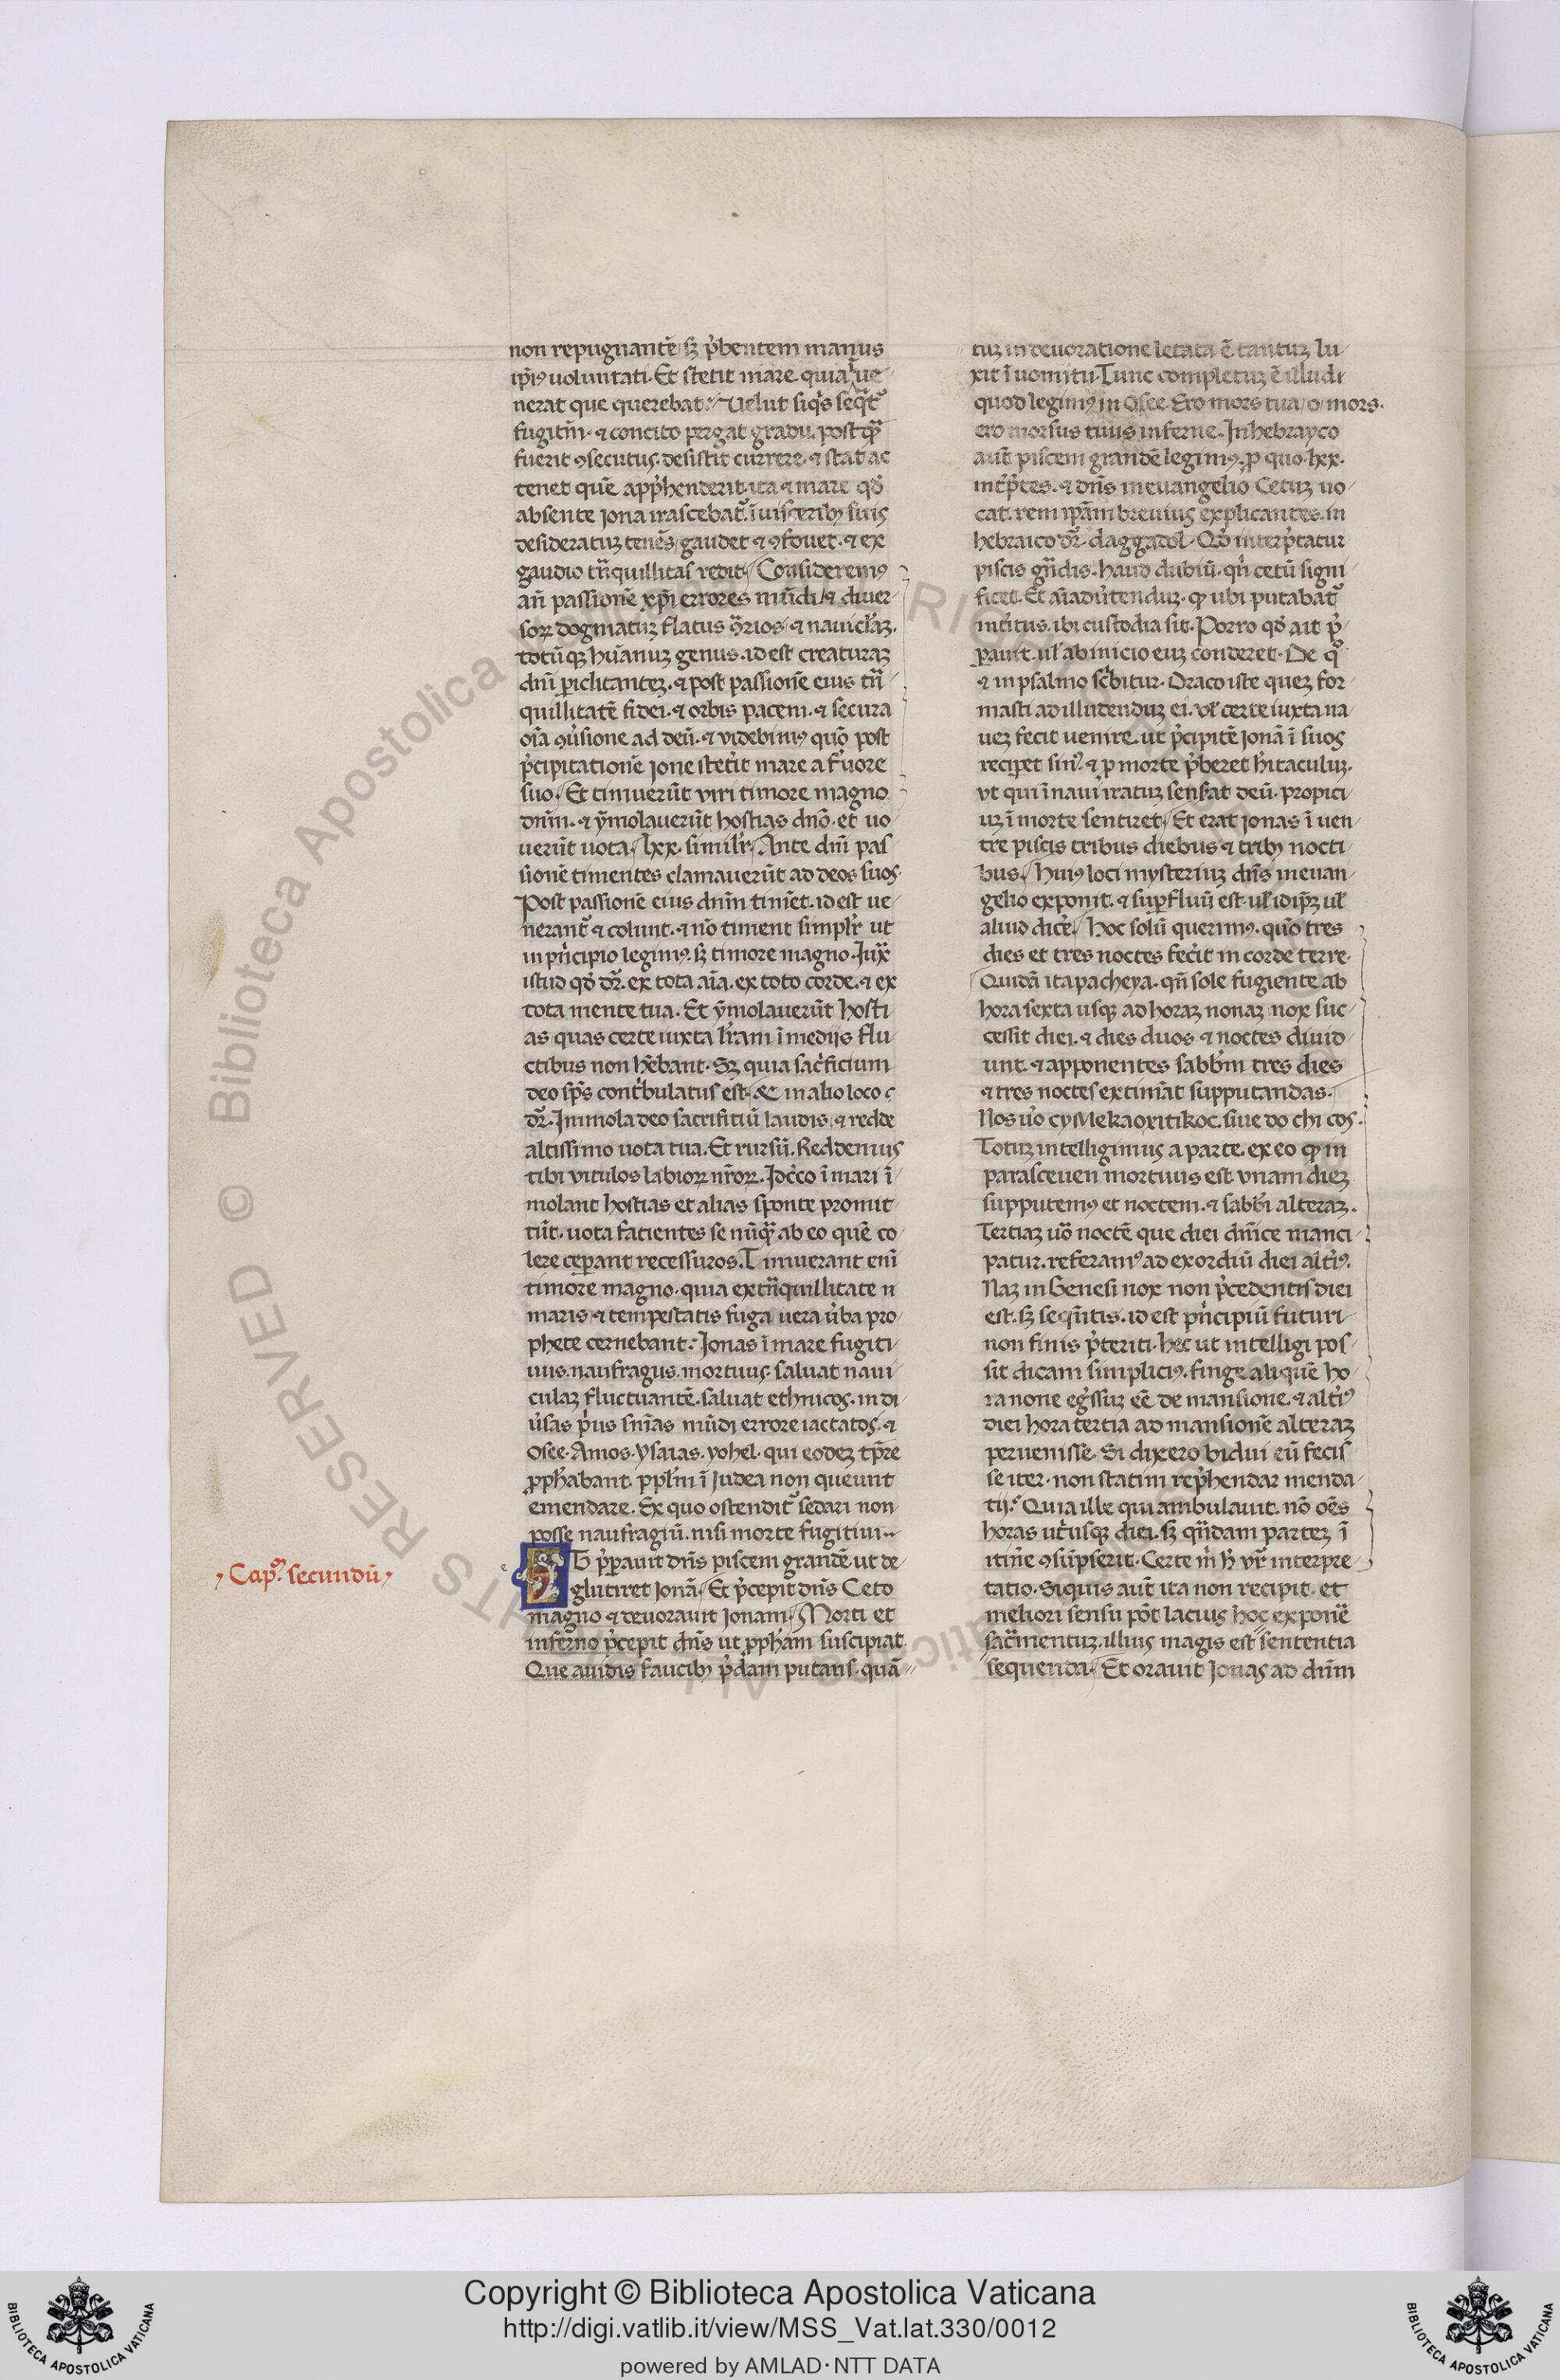 non repugnantē sʒ p̄bentem manus
ip̄iꝰ uoluntati. Et stetit mare quia ī ue
nerat que querebat. Velut siq̄s seq̄t᷑
fugitīm. ⁊ concito pergat gradu. postqᷓ
fuerit ꝯsecutus. desistit currere. ⁊ stat ac
tenet quē app̄henderit. ita ⁊ mare qđ
absente iona irascebat᷑. ī uisceribꝫ suis
desideratuʒ tenēs gaudet ⁊ ꝯfouet. ⁊ ex
gaudio tn̄quillitas redit. Consideremꝰ
an̄ passionē xp̄i errores mūdi ⁊ diuer
soꝝ dogmatuʒ flatus ꝯ̄rios. ⁊ nauicl̄aʒ.
totūqꝫ hūanuʒ genus. id est creaturaʒ
dn̄i ꝑiclitanteʒ. ⁊ post passionē eius tn̄
quillitatē fidei. ⁊ orbis pacem. ⁊ secura
oīa ꝯūsione ad deū. ⁊ videbimꝰ quō post
p̄cipitationē ione stetīt mare a fūore
suo. Et timuerūt viri timore magno
dnm̄. ⁊ ymolauerūt hostias dnō. et uo
uerūt uota. lxx. simil̄r. Ante dn̄i pas
sionē timentes clamauerūt ad deos suos.
Post passionē eius dnm̄ timēt. id est ue
nerant᷑ ⁊ colunt. ⁊ nō timent simpl̄r ut
in pn̄cipio legimꝰ. sʒ timore magno. Iux̄
istud qđ dr̄. ex tota aīa. ex toto corde. ⁊ ex
tota mente tua. Et ymolauerūt hosti
as quas certe iuxta lr̄am ī medijs flu
ctibus non hēbant. Sʒ quia sac̄ficium
deo sp̄s cont̄bulatus est. ⁊c in alio loco
dr̄. Immola deo sacrifitiū laudis. ⁊ redde
altissimo uota tua. Et rursū. Reddemus
tibi vitulos labioꝝ nr̄oꝝ. Idc̄co ī mari ī
molant hostias et alias sponte promit
tūt. uota facientes se nūqᷓ ab eo quē co
lere ceperant recessuros. Timuerant enī
timore magno. quia ex tn̄quillitate
maris ⁊ tempestatis fuga uera ūba pro
phete cernebant. Ionas ī mare fugiti
uus. naufragus. mortuus. saluat naui
culaʒ fluctuantē. saluat ethnicos. in di
ūsas p̄us snīas mūdi errore iactatos. ⁊
Osee. Amos. ysaias. yohel. qui eodeʒ tp̄re
ꝓph̄abant. ppl̄m ī iudea non queunt
emendare. Ex quo ostendit᷑ sedari non
posse naufragiū. nisi morte fugitiui
Cap.º secundū
Et p̄parauit dn̄s piscem grandē ut de
glutiret Ionā. Et p̄cepit dn̄s Ceto
magno ⁊ deuorauit Ionam. Morti et
inferno p̄cepit dn̄s ut ꝓph̄am suscipiat.
Que auidis faucibꝫ p̄dam putans. quā
tuʒ in deuoratione letata ē. tantuʒ lu
xit ī uomitu. Tunc completuʒ ē illud
quod legimꝰ in Osee. Ero mors tua o mors.
ero morsus tuus inferne. In hebrayco
aut̄ piscem grandē legimꝰ. ꝓ quo. lxx.
int̄p̄tes. ⁊ dn̄s in euangelio Cetuʒ uo
cat. rem ip̄am breuius explicantes. in
hebraico dr̄. daggadol. Qđ interp̄tatur
piscis gn̄dis. haud dubiū. qn̄ cetū signi
ficet. Et aīadūtenduʒ. ꝙ ubi putabat᷑
intītus. ibi custodia sit. Porro qđ ait p̄
parauit. ul̄ ab inicio euʒ conderet. De qº
⁊ in psalmo sc̄bitur. Draco iste queʒ for
masti ad illudenduʒ ei. vl̄ certe iuxta na
ueʒ fecit uenire. ut p̄cipitē ionā ī suos
recipet sinꝰ. ⁊ ꝓ morte p̄beret hītaculuʒ.
vt qui ī naui iratuʒ sensāt deū. propici
uʒ ī morte sentiret. Et erat ionas ī uen
tre piscis tribus diebus ⁊ tribꝫ nocti
bus. Huiꝰ loci mysteriuʒ dn̄s in euan
gelio exponit. ⁊ suꝑfluū est. ul̄ idip̄ʒ ul̄
aliud dicē. Hoc solū querimꝰ. quō tres
dies et tres noctes fecīt in corde terre.
Quidā ita pacheya. qn̄ sole fugiente ab
hora sexta usqꝫ ad horaʒ nonaʒ nox suc
cessit diei. ⁊ dies duos ⁊ noctes diuid
unt. ⁊ apponentes sabb̄m tres dies
⁊ tres noctes extimāt supputandas.
Nos uo cyMekaoxitikoc. siue do chi cos.
Totuʒ intelligimus a parte. ex eo ꝙ in
parasceuen mortuus est. vnam dieʒ
supputemꝰ et noctem. ⁊ sabb̄i alteraʒ.
Tertiaʒ uō noctē que diei dn̄ice manci
patur. referamꝰ ad exordiū diei altīꝰ.
Naʒ in Genesi nox non p̄cedentis diei
est. sʒ seqn̄tis. id est pn̄cipiū futuri
non finis p̄teriti. hec ut intelligi pos
sit dicam simpliciꝰ. finge aliquē ho
ra none eḡssuʒ eē de mansione. ⁊ altīꝰ
diei hora tertia ad mansionē alteraʒ
peruenisse. Si dixero bidui eū fecis
se iter. non statim rep̄hendar menda
tij. Quia ille qui ambulauit. nō oēs
horas ut̄usqꝫ diei. sʒ qn̄dam parteʒ ī
itīne ꝯsūpserit. Certe m̄ h̄ vr̄ interpre
tatio. Siquis aut̄ ita non recipit. et
meliori sensu pōt lacius hoc exponē
sac̄mentuʒ. illius magis est sententia
sequenda. Et orauit Ionas ad dnm̄
© Biblioteca Apostolica Vaticana
Copyright © Biblioteca Apostolica Vaticana
http://digi.vatlib.it/view/MSS_Vat.lat.330/0012
powered by AMLAD·NTT DATA
BIBLIOTECA APOSTOLICA VATICANA
BIBLIOTECA APOSTOLICA VATICANA